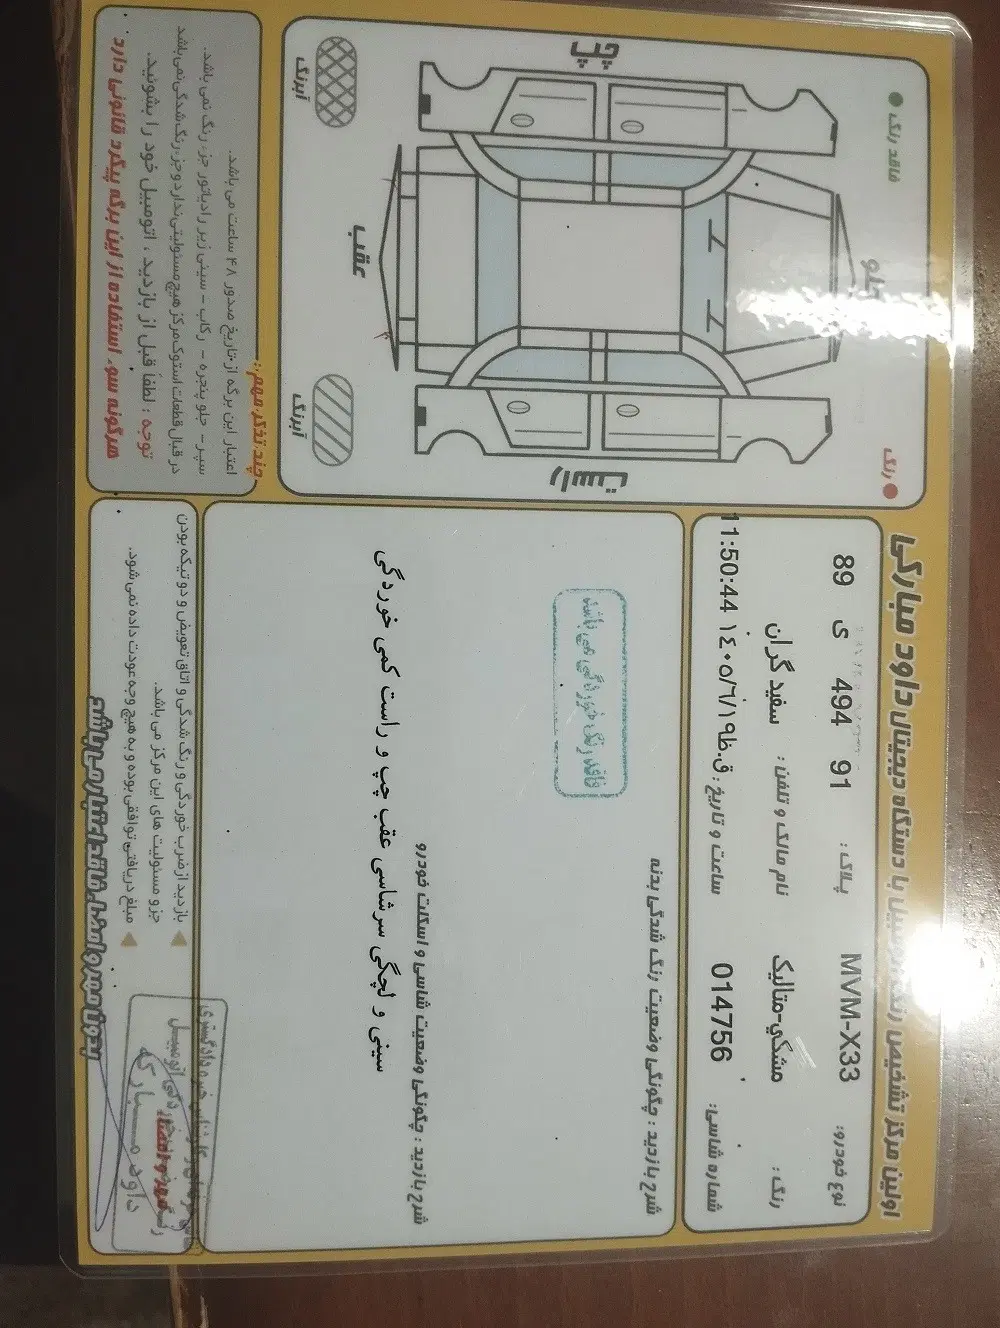 اولین مرکز تشخیص رنگ اتومبیل با دستگاه دیجیتال داود مبارکی
نوع خودرو: MVM-X33
پلاک: 89 ی 494 91
رنگ: مشکي-متالیک
نام مالک و تلفن: سفید گران
شماره شاسی: 014756
ساعت و تاریخ: ق.ظ ١٤٠٥/٦/١٩ 11:50:44
شرح بازدید: چگونگی وضعیت رنگ شدگی بدنه
فاقد رنگ خوردگی می باشد
شرح بازدید: چگونگی وضعیت شاسی و اسکلت خودرو
سینی و لچگی سرشاسی عقب چپ و راست کمی خوردگی
فاقد رنگ
رنگ
چپ
جلو
عقب
راست
آبرنگ
آبرنگ
چند تذکر مهم:
اعتبار این برگه از تاریخ صدور ۴۸ ساعت می باشد.
سپر - جلو پنجره - رکاب - سینی زیر رادیاتور جزء رنگ نمی باشد.
در قبال قطعات استوک مرکز هیچ مسئولیتی ندارد و جزء رنگ شدگی نمی باشد
توجه: لطفا قبل از بازدید، اتومبیل خود را بشوئید.
هرگونه سوء استفاده از این برگه پیگرد قانونی دارد
بازدید از ضرب خوردگی و رنگ شدگی و اتاق تعویض و دو تیکه بودن
جزو مسئولیت های این مرکز می باشد.
مبلغ دریافتی توافقی بوده و به هیچ وجه عودت داده نمی شود.
بدون مهر و امضاء فاقد اعتبار می باشد
مهر و امضاء
داود مبارکه